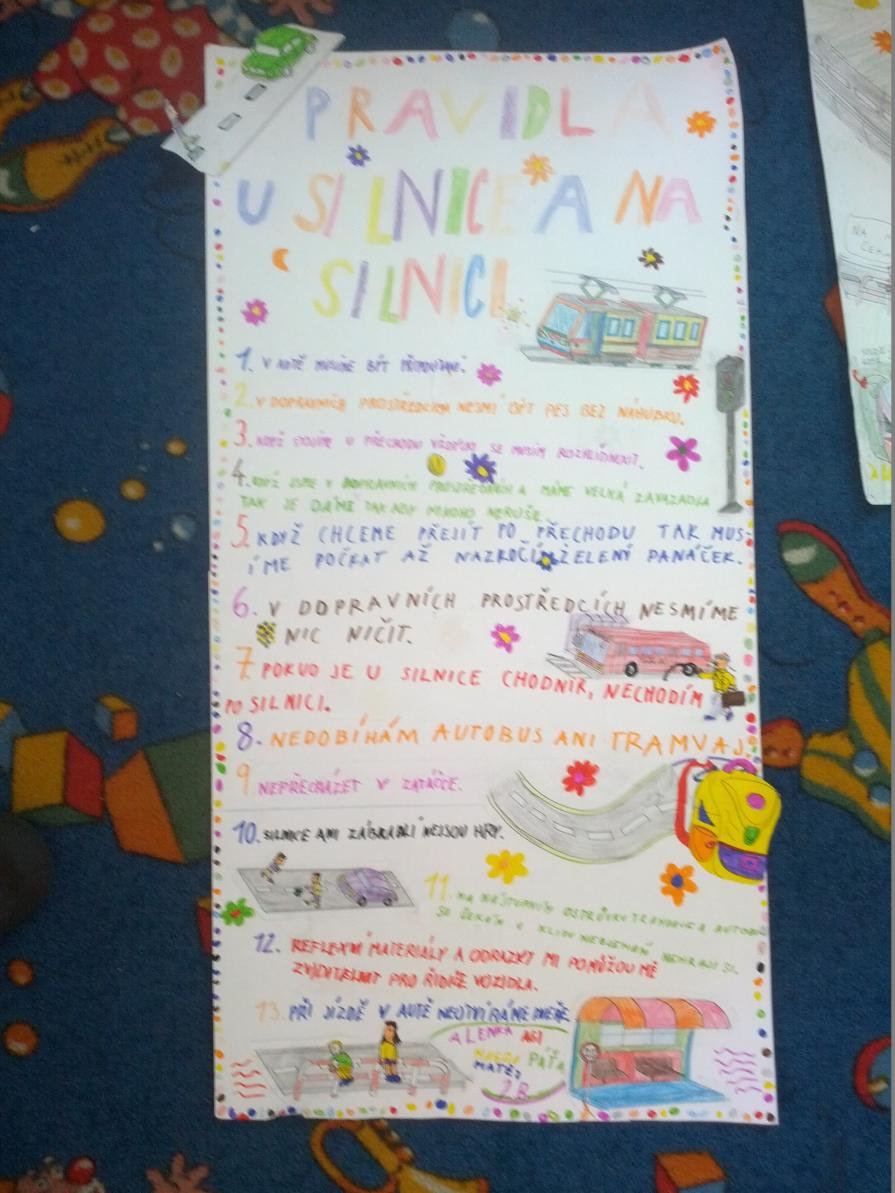 PRAVIDLA
U SILNICE A NA
SILNICI
1. V AUTĚ MUSÍME BÝT PŘIPOUTANÍ.
2. V DOPRAVNÍCH PROSTŘEDCÍCH NESMÍ BÝT PES BEZ NÁHUBKU.
3. KDYŽ STOJÍM U PŘECHODU VŽDYCKY SE MUSÍM ROZHLÍDNOUT.
4. KDYŽ JSME V DOPRAVNÍCH PROSTŘEDCÍCH A MÁME VELKÁ ZAVAZADLA
TAK JE DÁME TAK ABY NIKOHO NERUŠIL
5. KDYŽ CHCEME PŘEJÍT PO PŘECHODU TAK MUS-
ÍME POČKAT AŽ NAZKOČÍ ZELENÝ PANÁČEK.
6. V DOPRAVNÍCH PROSTŘEDCÍCH NESMÍME
NIC NIČIT.
7. POKUD JE U SILNICE CHODNÍK, NECHODÍM
PO SILNICI.
8. NEDOBÍHÁM AUTOBUS ANI TRAMVAJ.
9 NEPŘECHÁZET V ZATÁČCE.
10. SILNICE ANI ZÁBRADLÍ NEJSOU HRY.
11. NA NÁSTUPNÍM OSTRŮVKU TRAMVAJE A AUTOBU
SU ČEKÁM V KLIDU NEBĚHÁM NEHRAJI SI.
12. REFLEXNÍ MATERIÁLY A ODRAZKY MI POMŮŽOU MĚ
ZVIDITELNIT PRO ŘIDIČE VOZIDLA.
13. PŘI JÍZDĚ V AUTĚ NEOTVÍRÁME DVEŘE
ALENKA AGI
MAGDA PÁŤA
MATĚJ
2.B
NA